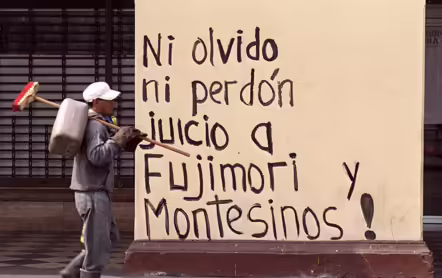 Ni olvido
ni perdón
juicio a
Fujimori y
Montesinos!